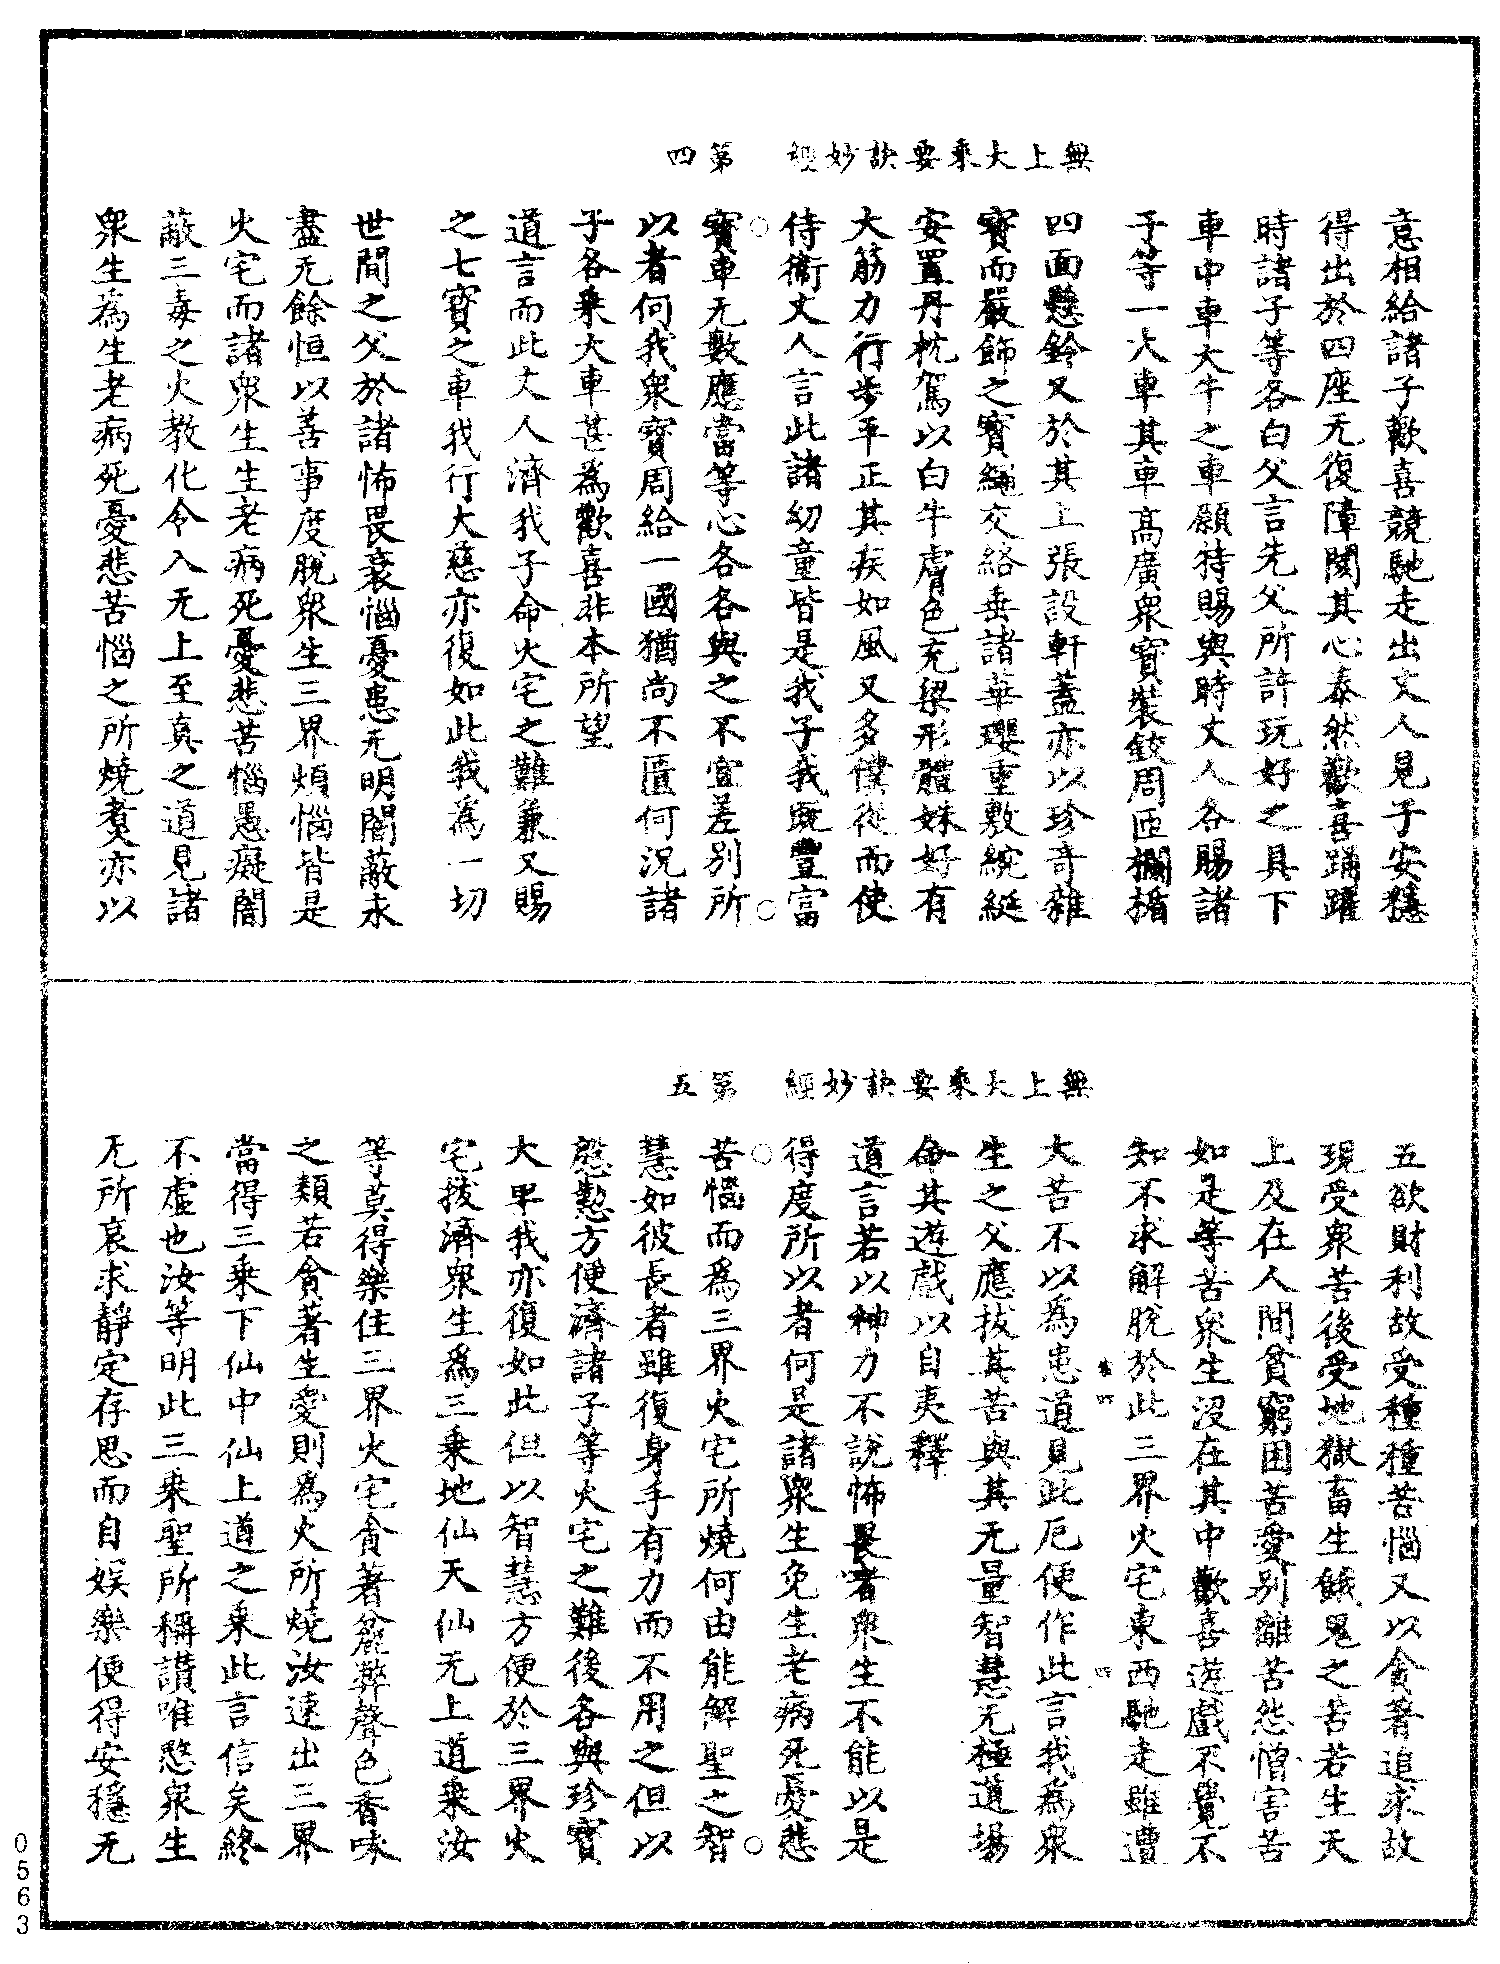 無上大乘要訣妙經　第四
意相給諸子歡喜競馳走出丈人見子安穩
得出於四座无復障閡其心泰然歡喜踊躍
時諸子等各白父言先父所許玩好之具下
車中車大牛之車願特賜與時丈人各賜諸
子等一大車其車髙廣衆寶裝鉸周匝欄楯
四面懸鈴又於其上張設軒蓋亦以珍奇雜
寶而嚴飾之寶繩交絡垂諸華瓔重敷綩綖
安置丹枕駕以白牛膚色充梁形體姝好有
大筋力行步平正其疾如風又多僕從而使
侍衞丈人言此諸幼童皆是我子我旣豐富
寶車无數應當等心各各與之不宜差别所
以者何我衆寶周給一國猶尚不匱何況諸
子各乘大車甚為歡喜非本所望
道言而此丈人濟我子命火宅之難兼又賜
之七寶之車我行大慈亦復如此我為一切
世間之父於諸怖畏衰惱憂患无明闇蔽永
盡无餘恒以善事度脫衆生三界煩惱皆是
火宅而諸衆生生老病死憂悲苦惱愚癡闇
蔽三毒之火教化令入无上至真之道見諸
衆生為生老病死憂悲苦惱之所燒煑亦以
無上大乘要訣妙經　第五
五欲財利故受種種苦惱又以貪著追求故
現受衆苦後受地獄畜生餓鬼之苦若生天
上及在人間貧窮困苦愛别離苦怨憎害苦
如是等苦衆生沒在其中歡喜遊戲不覺不
知不求解脫於此三界火宅東西馳走雖遭
大苦不以為患道見此厄便作此言我為衆
生之父應拔其苦與其无量智慧无極道場
命其遊戲以自夷釋
道言若以神力不說怖畏者衆生不能以是
得度所以者何是諸衆生免生老病死憂悲
苦惱而為三界火宅所燒何由能解聖之智
慧如彼長者雖復身手有力而不用之但以
慇懃方便濟諸子等火宅之難後各與珍寶
大車我亦復如此但以智慧方便於三界火
宅拔濟衆生為三乘地仙天仙无上道乘汝
等莫得樂住三界火宅貪著麄弊聲色香味
之類若貪著生愛則為火所燒汝速出三界
當得三乘下仙中仙上道之乘此言信矣終
不虛也汝等明此三乘聖所稱讃唯愍衆生
无所哀求靜定存思而自娛樂便得安穩无
0563